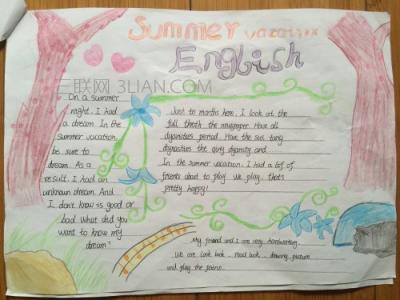 Summer vacation
English
三联网 3LIAN.COM
On a summer
night, I had
a dream. In the
summer vacation,
be sure to
dream. As a
result, I had an
unknown dream. And
I don't know is good or
bad. What did you
want to know my
dream?
Just to months here, I look at the
full the newspaper. Have all
dynasties period. Have the sui tang
dynasties the qing dynasty and
In the summer vacation. I had a lot of
friends about to play. We play. that's
pretty happy!
My friend and I are very
We are look book. Read book, drawing picture
and play the piano.